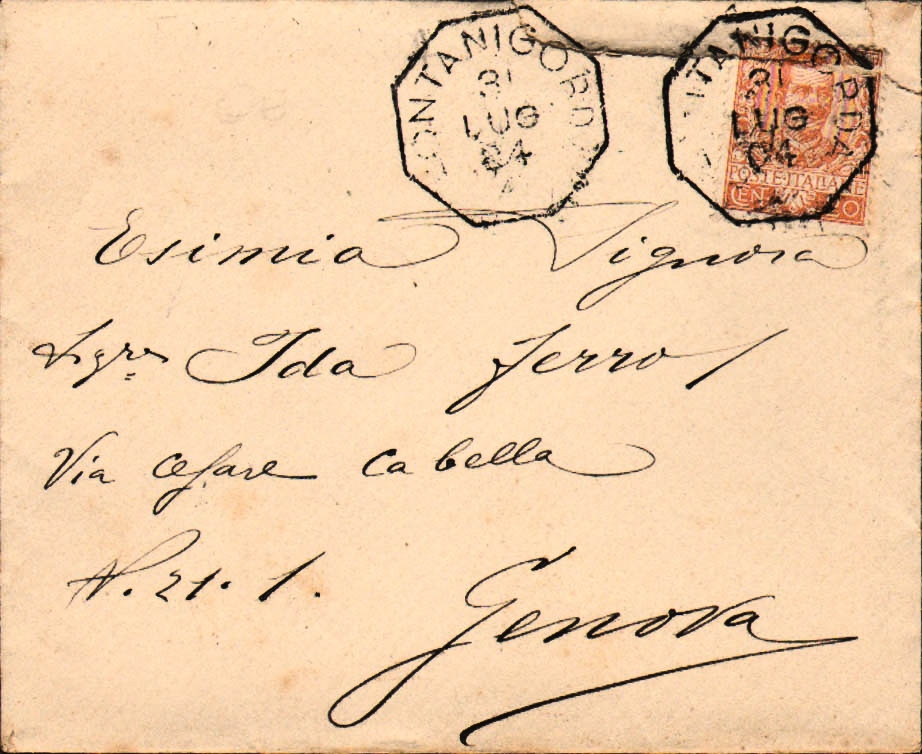 FONTANIGORDA
31
LUG
04
FONTANIGORDA
31
LUG
04
POSTE ITALIANE
Esimia Signora
Sigra Ida Ferro
Via Cesare Cabella
N. 21. 1.
Genova